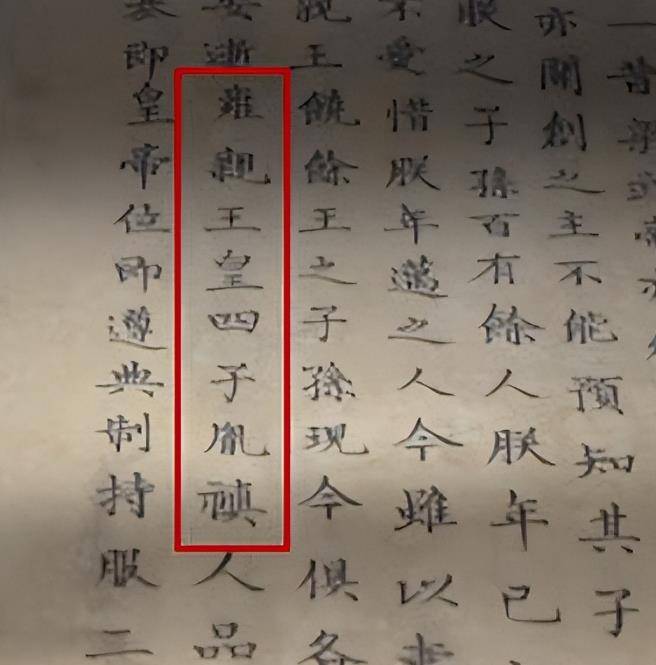 一昔
亦開創之主不能預知其子
朕之子孫百有餘人朕年已
愛惜朕年邁之人今雖以
親王饒餘王之子孫現今俱各
安逝雍親王皇四子胤禛人品
基即皇帝位即遵典制持服二